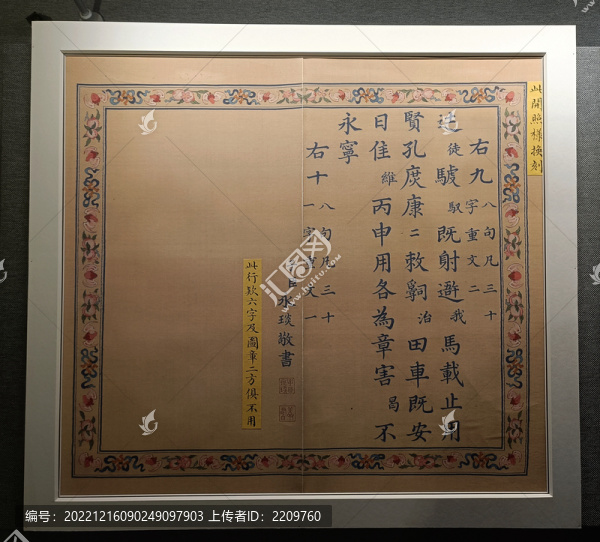 此開照樣換刻
右九八句凡三十
字重文二
徒驉馭既射避我馬載止用
賢孔庶康二敕嗣治田車既安
日隹維丙申用各為章害曷不
永寧
右十八句凡三十
一字重文一
臣永琰敬書
此行欵六字及圖章二方俱不用
汇图网
www.huitu.com
编号:20221216090249097903 上传者ID:2209760